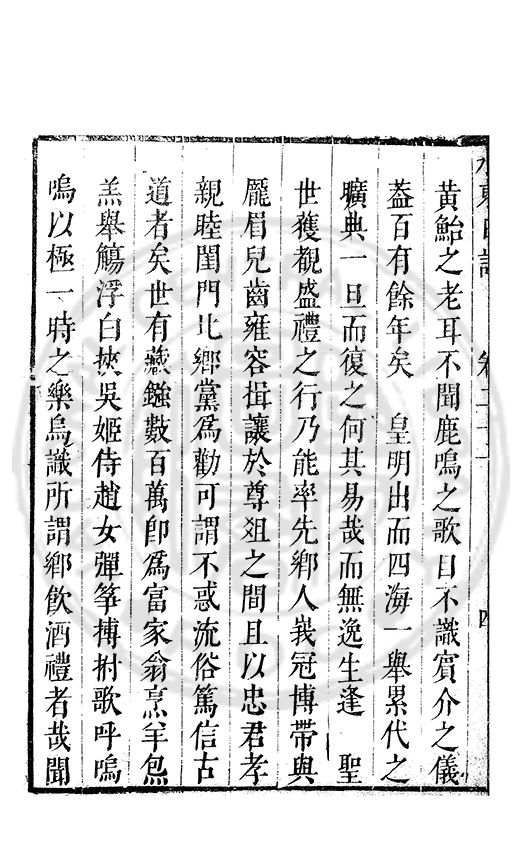 水東日記　卷二十一　四
黃鮐之老耳不聞鹿鳴之歌目不識賓介之儀
葢百有餘年矣　皇明出而四海一舉累代之
曠典一旦而復之何其易哉而無逸生逢　聖
世獲覩盛禮之行乃能率先鄉人峩冠博帶與
龎眉兒齒雍容揖讓於尊俎之間且以忠君孝
親睦閨門比鄉黨爲勸可謂不惑流俗篤信古
道者矣世有藏鏹數百萬卽爲富家翁烹羊炰
羔舉觴浮白挾吳姬侍趙女彈箏搏拊歌呼嗚
嗚以極一時之樂烏識所謂鄉飲酒禮者哉聞